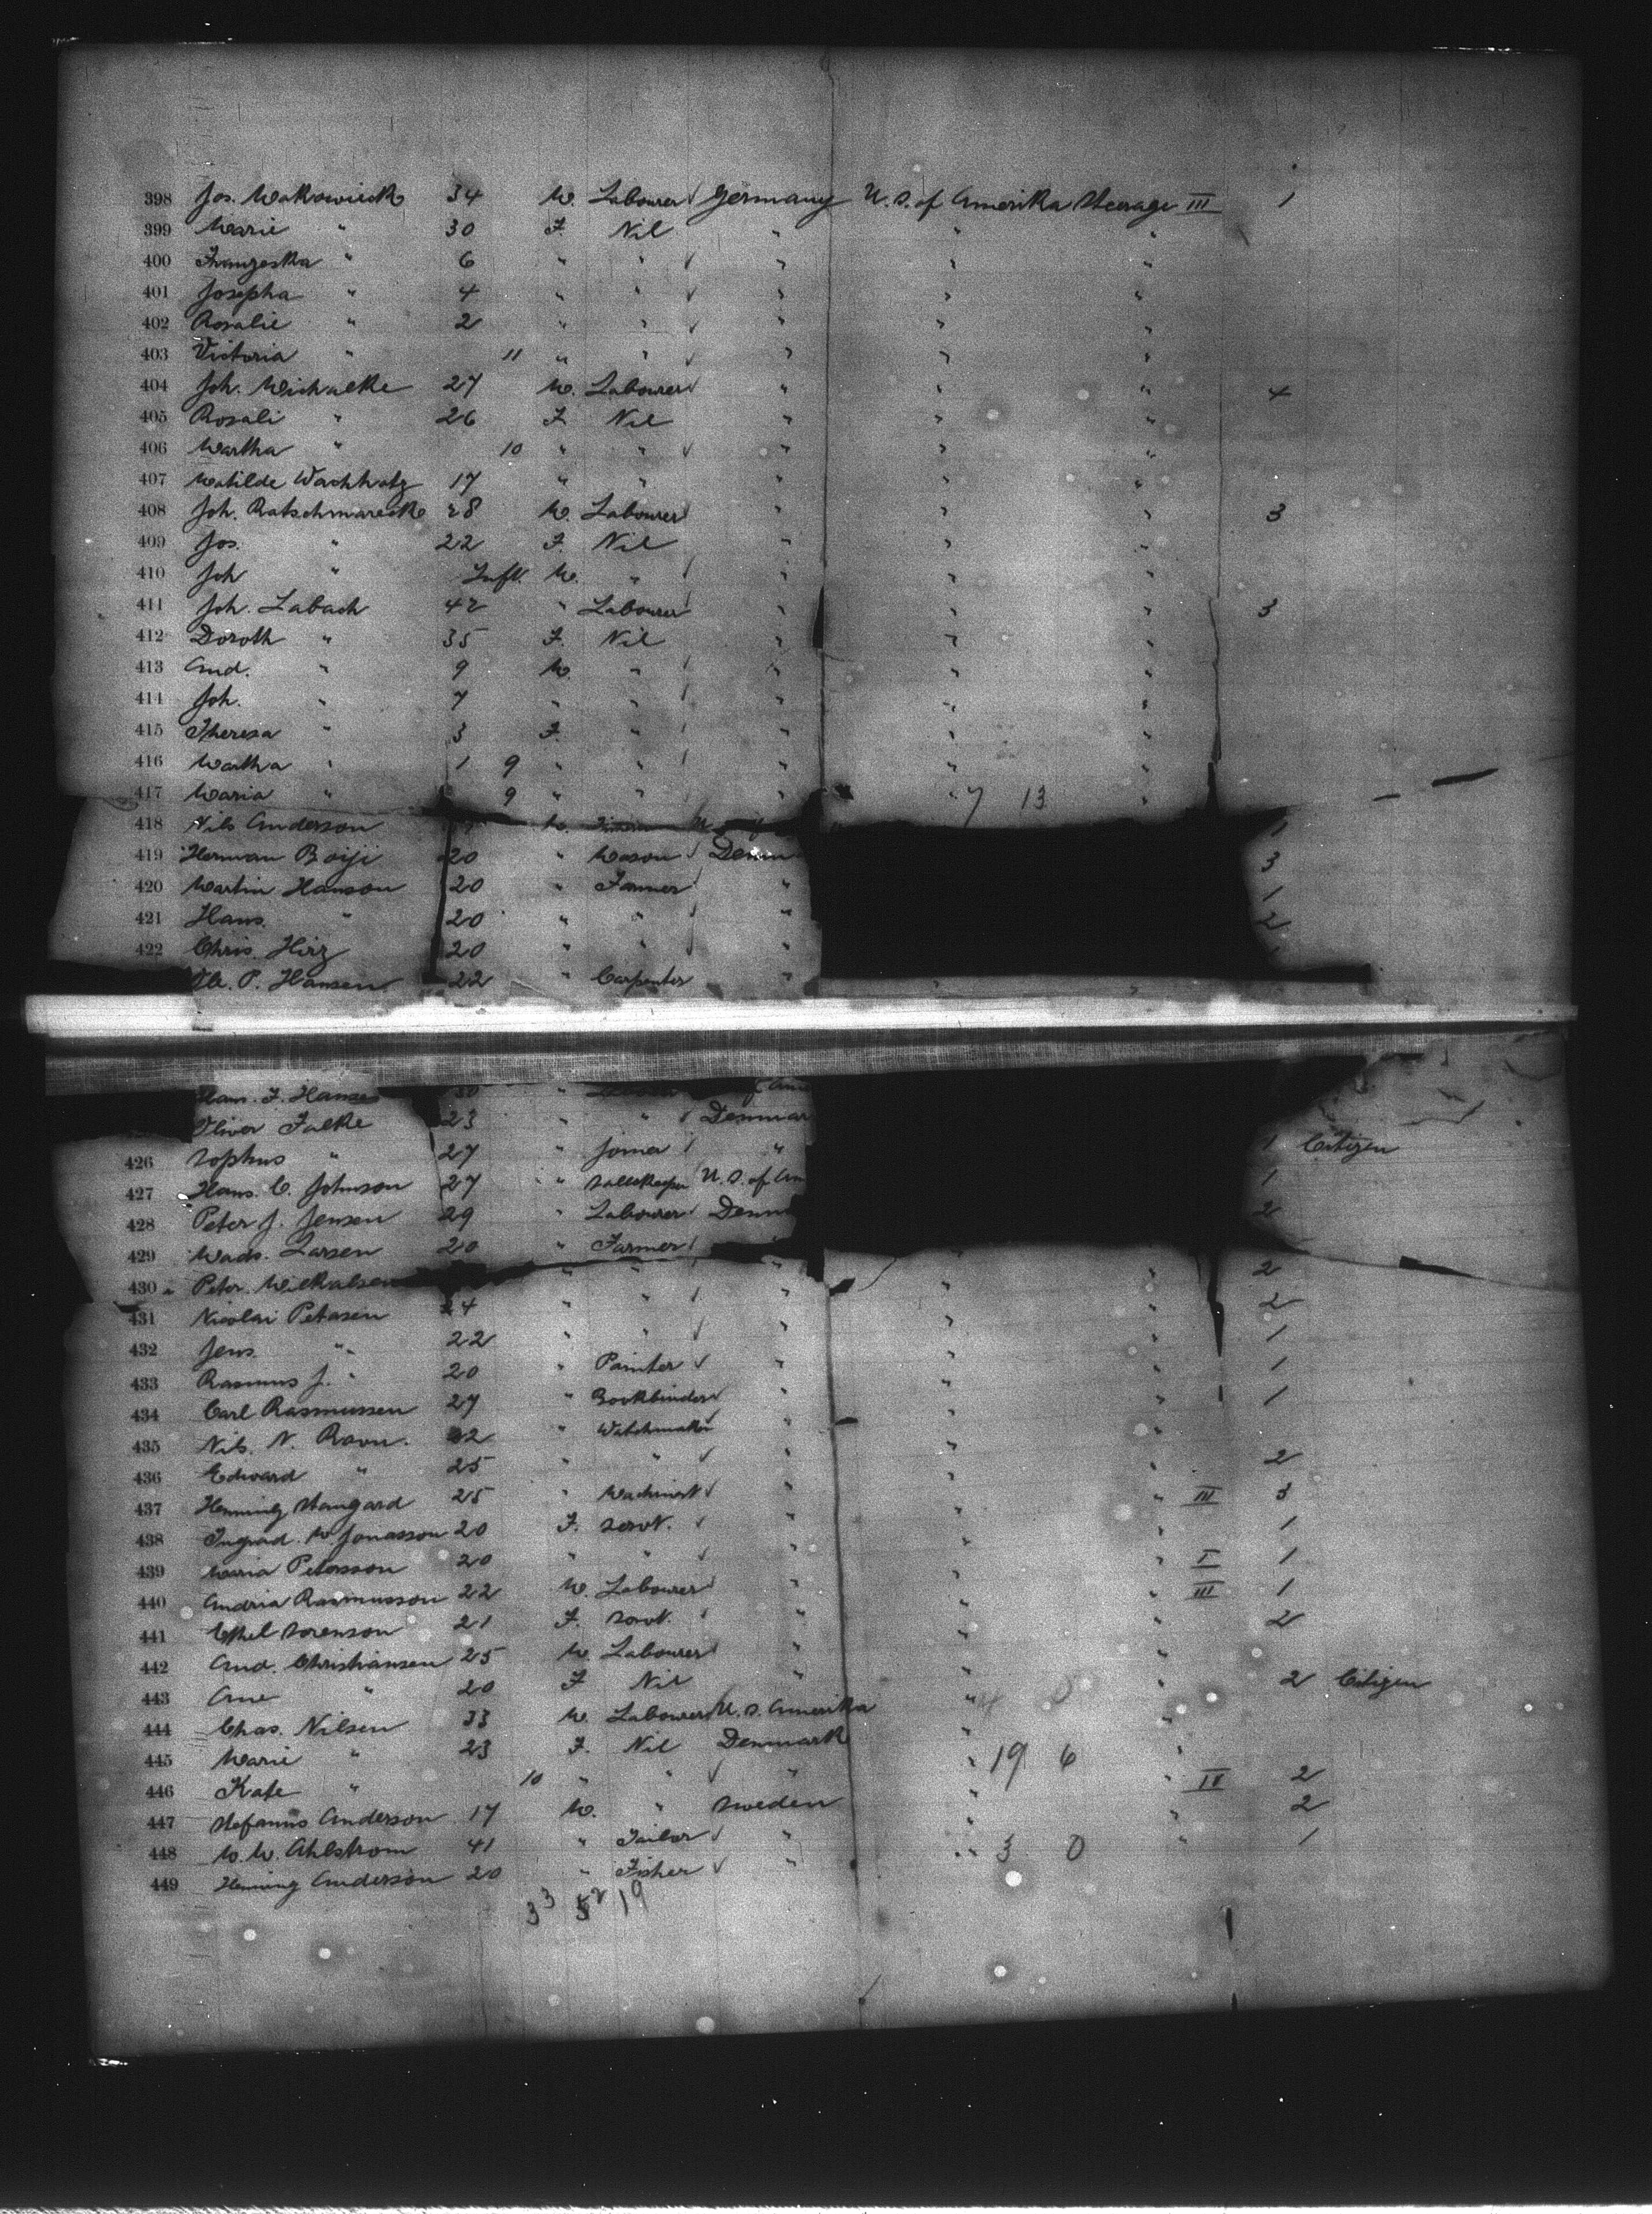 398 Jos. Makowieck 34 M. Labourer Germany U.S. of Amerika Steerage III 1
399 Marie " 30 F. Nil " " "
400 Franzeska " 6 " " " " "
401 Josepha " 4 " " " " "
402 Rosalie " 2 " " " " "
403 Victoria " 11 " " " " "
404 Joh. Michalke 27 M. Labourer " " " 4
405 Rosali " 26 F. Nil " " "
406 Martha " 10 " " " " "
407 Matilde Wachholz 17 " " " " "
408 Joh. Ratschmareck 28 M. Labourer " " " 3
409 Jos. " 22 F. Nil " " "
410 Joh " Inft. M. " " " "
411 Joh. Labach 42 " Labourer " " " 3
412 Doroth " 35 F. Nil " " "
413 And. " 9 M. " " " "
414 Joh. " 7 " " " " "
415 Theresa " 3 F. " " " "
416 Martha " 1 9 " " " " "
417 Maria " 9 " " " 7 13 "
418 Nils Anderson M. 1
419 Herman Boiji 20 " Mason Denm 3
420 Martin Hanson 20 " Farmer " 1
421 Hans. " 20 " " " 2
422 Chris. Hirz 20 " " "
P. Hansen 22 " Carpenter "
Hans. F. Hanse 30 "
Oliver Falke 23 " " Denmar
426 Sophus " 27 " Joiner " 1 Citizen
427 Hans. C. Johnson 27 " U.S. of Am 1
428 Peter J. Jensen 29 " Labourer Denm 2
429 Mads. Larsen 20 " Farmer "
430 Peter. Mikkalsen " " " " " 2
431 Nicolai Petasen 24 " " " " " 2
432 Jens. " 22 " " " " " 1
433 Rasmus J. " 20 " Painter " " " 1
434 Carl Rasmussen 27 " Bookbinder " " " 1
435 Nils. N. Ravn. 22 " Watchmaker " " "
436 Edward " 25 " " " " " 2
437 Henning Staugard 25 " Machinist " " " III 3
438 Ingrad. M Jonasson 20 F. Servt. " " " 1
439 Maria Petersson 20 " " " " " I 1
440 Andria Rasmusson 22 M. Labourer " " " III 1
441 Ethel Sorenson 21 F. Servt. " " " 2
442 And. Christiansen 25 M. Labourer " " "
443 Ane " 20 F Nil " " " 2 Citizen
444 Chas. Nilsen 33 M. Labourer U.S. Amerika " "
445 Marie " 23 F. Nil Denmark " 19 6 "
446 Kate " 10 " " " " " IV 2
447 Stefanus Anderson 17 M. " Sweden " " 2
448 M. M. Ahlstrom 41 " Tailor " " 3 0 " 1
449 Henning Anderson 20 " Fisher "
33 52 19